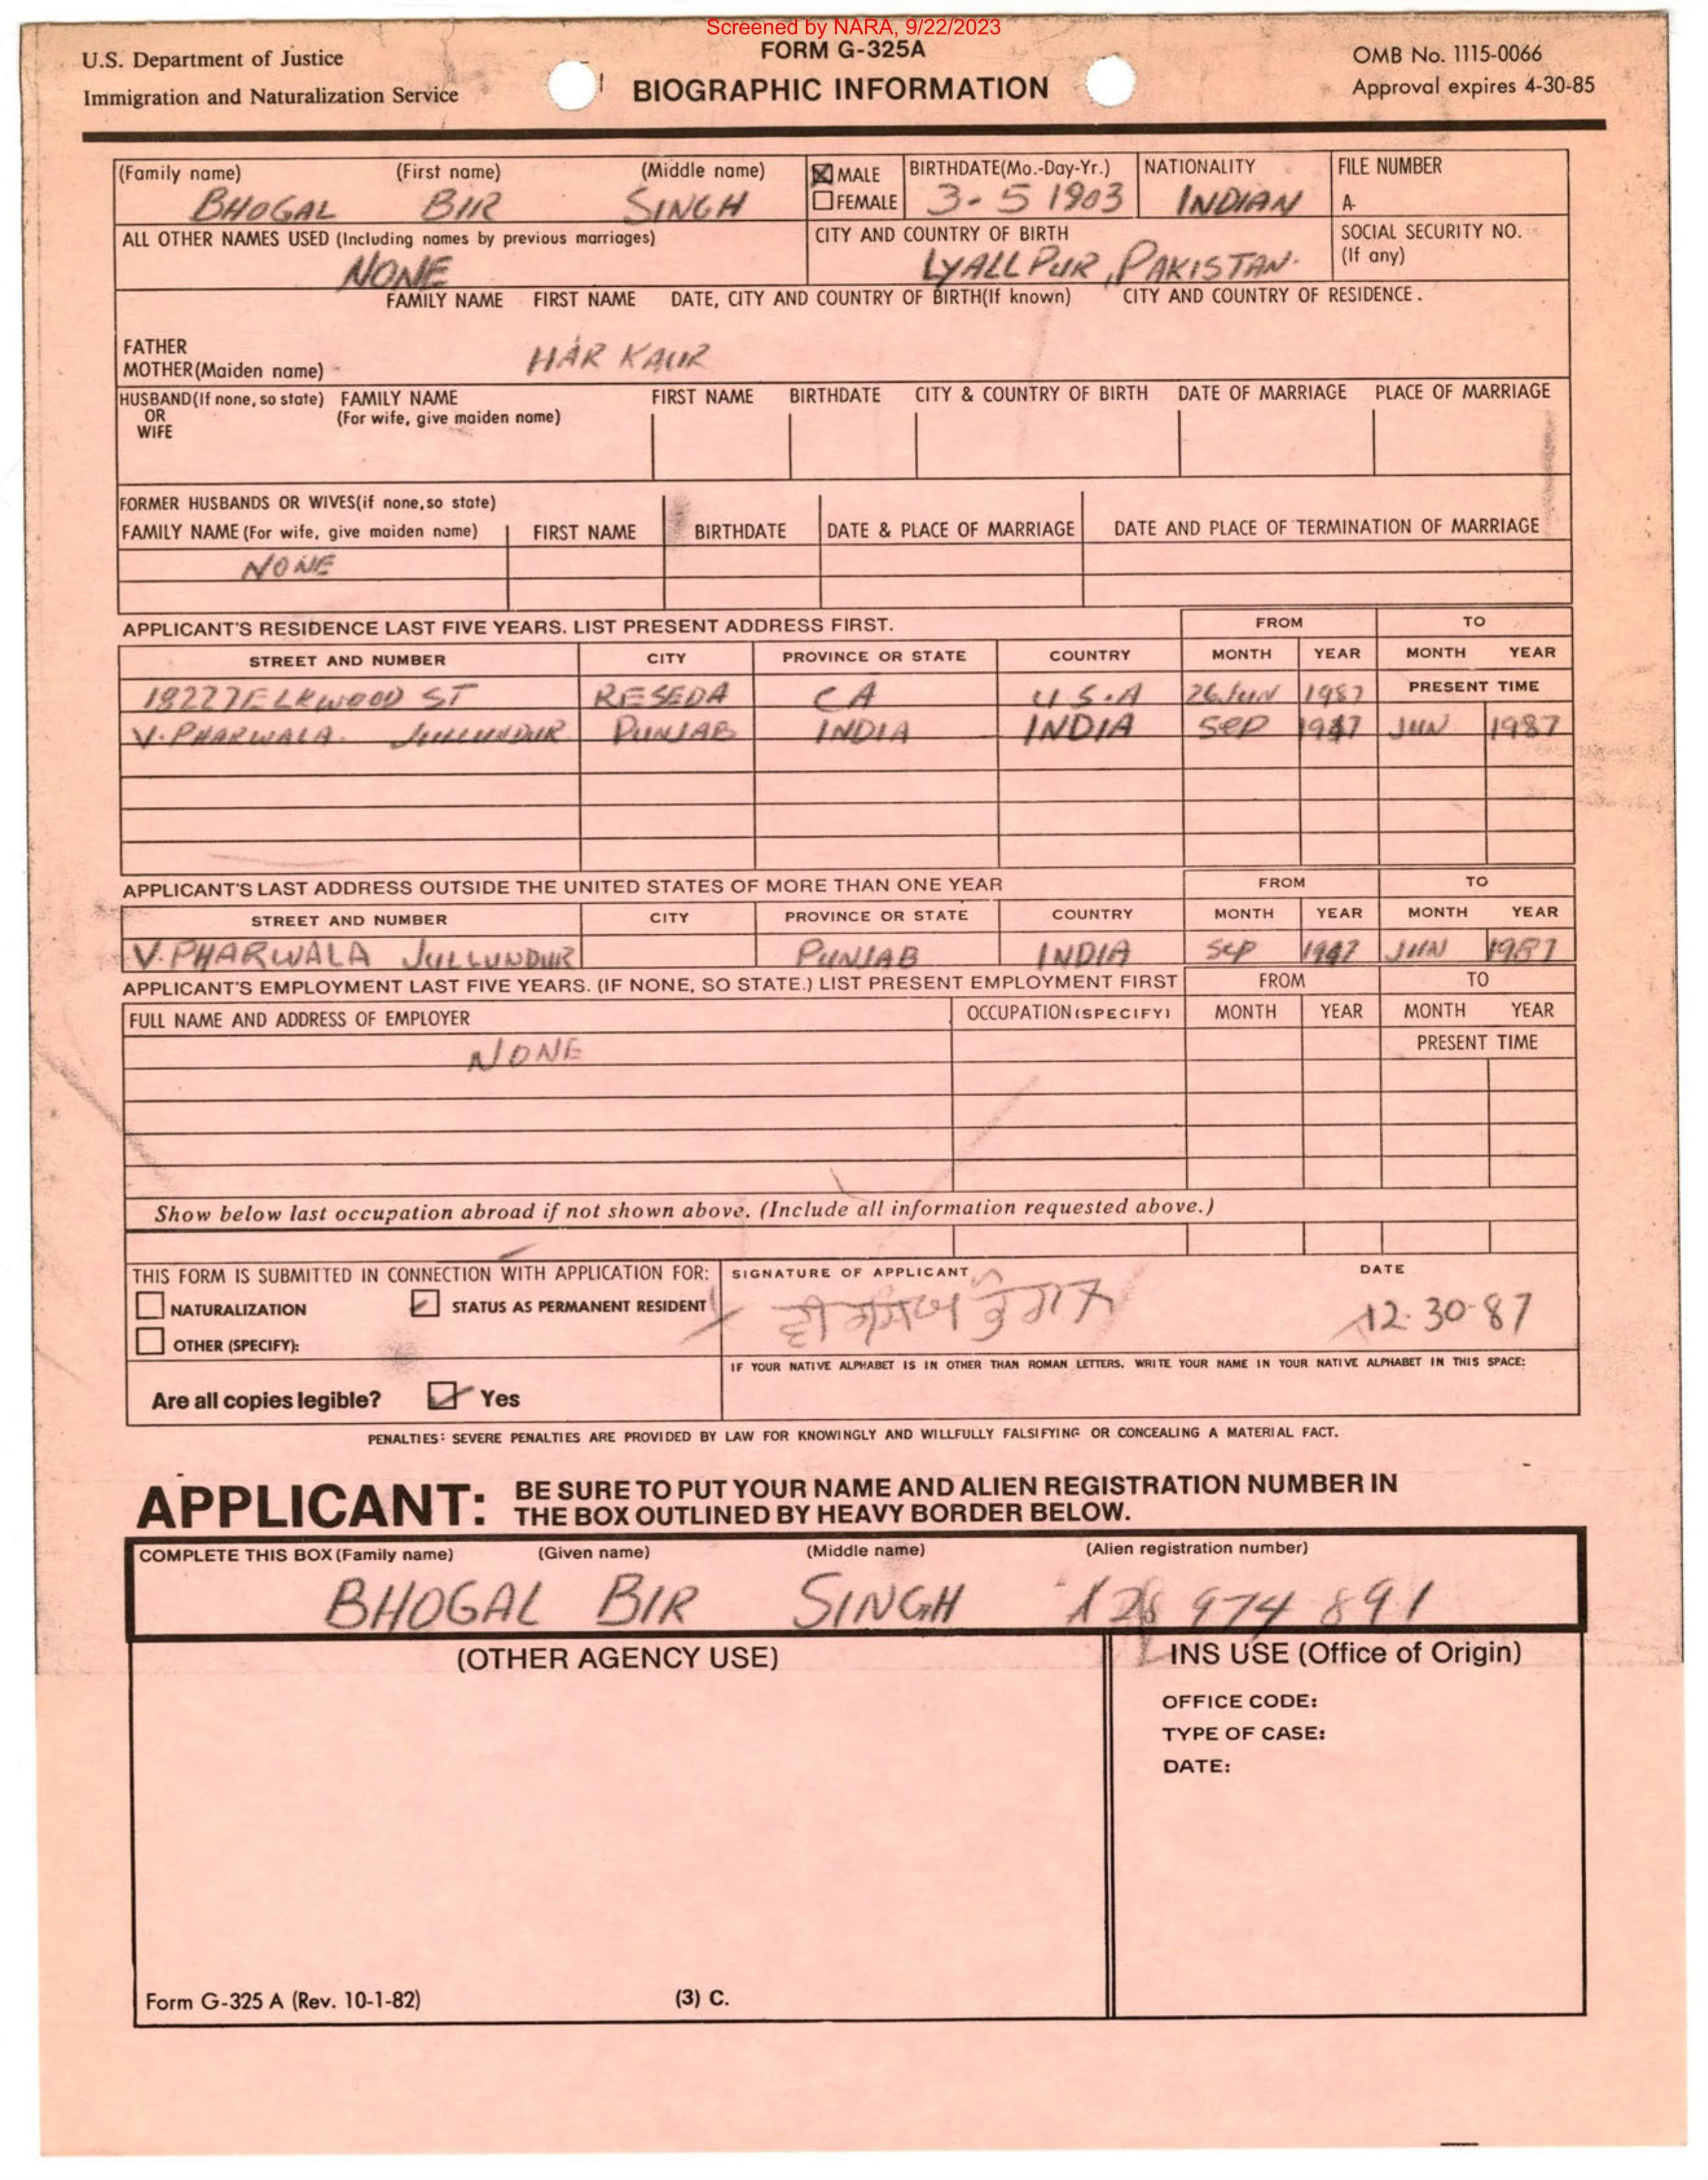 Screened by NARA, 9/22/2023
U.S. Department of Justice
Immigration and Naturalization Service
FORM G-325A
BIOGRAPHIC INFORMATION
OMB No. 1115-0066
Approval expires 4-30-85
(Family name) (First name) (Middle name)
BHOGAL BIR SINGH
MALE
FEMALE
BIRTHDATE(Mo.-Day-Yr.)
3-5 1903
NATIONALITY
INDIAN
FILE NUMBER
A-
ALL OTHER NAMES USED (Including names by previous marriages)
NONE
CITY AND COUNTRY OF BIRTH
LYALLPUR, PAKISTAN.
SOCIAL SECURITY NO.
(If any)
FAMILY NAME FIRST NAME DATE, CITY AND COUNTRY OF BIRTH(If known) CITY AND COUNTRY OF RESIDENCE.
FATHER
MOTHER(Maiden name) HAR KAUR
HUSBAND(If none, so state) FAMILY NAME FIRST NAME BIRTHDATE CITY & COUNTRY OF BIRTH DATE OF MARRIAGE PLACE OF MARRIAGE
OR (For wife, give maiden name)
WIFE
FORMER HUSBANDS OR WIVES(if none, so state)
FAMILY NAME (For wife, give maiden name) FIRST NAME BIRTHDATE DATE & PLACE OF MARRIAGE DATE AND PLACE OF TERMINATION OF MARRIAGE
NONE
APPLICANT'S RESIDENCE LAST FIVE YEARS. LIST PRESENT ADDRESS FIRST. FROM TO
STREET AND NUMBER CITY PROVINCE OR STATE COUNTRY MONTH YEAR MONTH YEAR
18227 ELKWOOD ST RESEDA CA U S.A 26 JUN 1987 PRESENT TIME
V. PHARWALA. JULLUNDUR PUNJAB INDIA INDIA SEP 1947 JUN 1987
APPLICANT'S LAST ADDRESS OUTSIDE THE UNITED STATES OF MORE THAN ONE YEAR FROM TO
STREET AND NUMBER CITY PROVINCE OR STATE COUNTRY MONTH YEAR MONTH YEAR
V. PHARWALA JULLUNDUR PUNJAB INDIA SEP 1947 JUN 1987
APPLICANT'S EMPLOYMENT LAST FIVE YEARS. (IF NONE, SO STATE.) LIST PRESENT EMPLOYMENT FIRST FROM TO
FULL NAME AND ADDRESS OF EMPLOYER OCCUPATION (SPECIFY) MONTH YEAR MONTH YEAR
NONE PRESENT TIME
Show below last occupation abroad if not shown above. (Include all information requested above.)
THIS FORM IS SUBMITTED IN CONNECTION WITH APPLICATION FOR:
NATURALIZATION STATUS AS PERMANENT RESIDENT
OTHER (SPECIFY):
SIGNATURE OF APPLICANT DATE
12-30-87
IF YOUR NATIVE ALPHABET IS IN OTHER THAN ROMAN LETTERS, WRITE YOUR NAME IN YOUR NATIVE ALPHABET IN THIS SPACE:
Are all copies legible? Yes
PENALTIES: SEVERE PENALTIES ARE PROVIDED BY LAW FOR KNOWINGLY AND WILLFULLY FALSIFYING OR CONCEALING A MATERIAL FACT.
APPLICANT: BE SURE TO PUT YOUR NAME AND ALIEN REGISTRATION NUMBER IN
THE BOX OUTLINED BY HEAVY BORDER BELOW.
COMPLETE THIS BOX (Family name) (Given name) (Middle name) (Alien registration number)
BHOGAL BIR SINGH 974 891
(OTHER AGENCY USE)
INS USE (Office of Origin)
OFFICE CODE:
TYPE OF CASE:
DATE:
Form G-325 A (Rev. 10-1-82) (3) C.